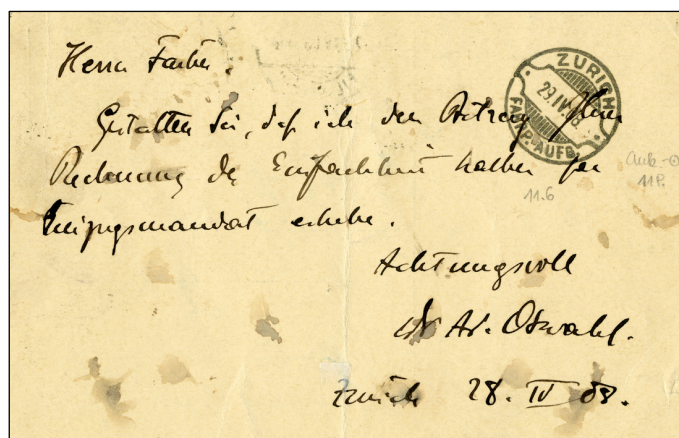 Herrn Farber.
Gestatten Sie, daß ich den Betrag Ihrer
Rechnung der Einfachheit halber per
Einzugsmandat erhebe.
Achtungsvoll
Dr Ad. Oswald.
Zürich 28. IV 08.
ZÜRICH
29.IV
FAHRP. AUFG.
11.6
11P.